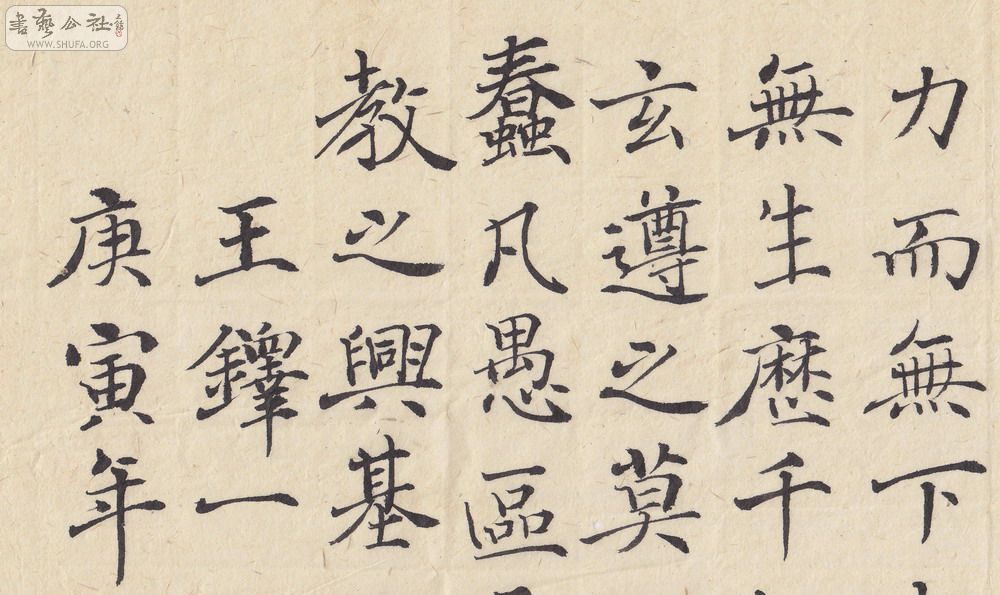 力而無下
無生歷千
玄遵之莫
蠢凡愚區
教之興基
王鐸一
庚寅年
書藝公社
WWW.SHUFA.ORG